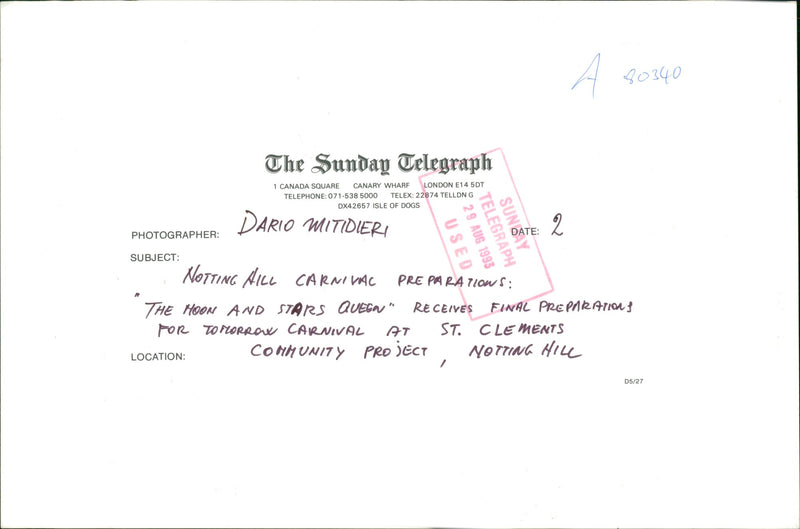 A 80340
The Sunday Telegraph
1 CANADA SQUARE CANARY WHARF LONDON E14 5DT
TELEPHONE: 071-538 5000 TELEX: 22874 TELLDN G
DX42657 ISLE OF DOGS
PHOTOGRAPHER: DARIO MITIDIERI DATE: 2
SUNDAY
TELEGRAPH
29 AUG 1993
USED
SUBJECT:
NOTTING HILL CARNIVAL PREPARATIONS:
"THE MOON AND STARS QUEEN" RECEIVES FINAL PREPARATIONS
FOR TOMORROW CARNIVAL AT ST. CLEMENTS
LOCATION: COMMUNITY PROJECT, NOTTING HILL
D5/27